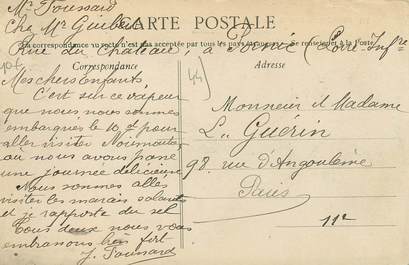 Mr Foussard
Che Mr Guibert
Rue du Château, à Pornic (Loire-Infre
CARTE POSTALE
La correspondance au recto n'est pas acceptée par tous les pays
se renseigner à la Poste
Correspondance
Adresse
44
Mes chers Enfants
C'est sur ce vapeur
que nous nous sommes
embarqués le 10 pour
aller visiter Noirmoutier
où nous avons passé
une journée délicieuse
Nous sommes allés
visiter les marais salants
et je rapporte du sel
Tous deux nous vous
embrassons bien fort
J. Foussard
Monsieur et Madame
L. Guérin
98 rue d'Angoulème
Paris
11e